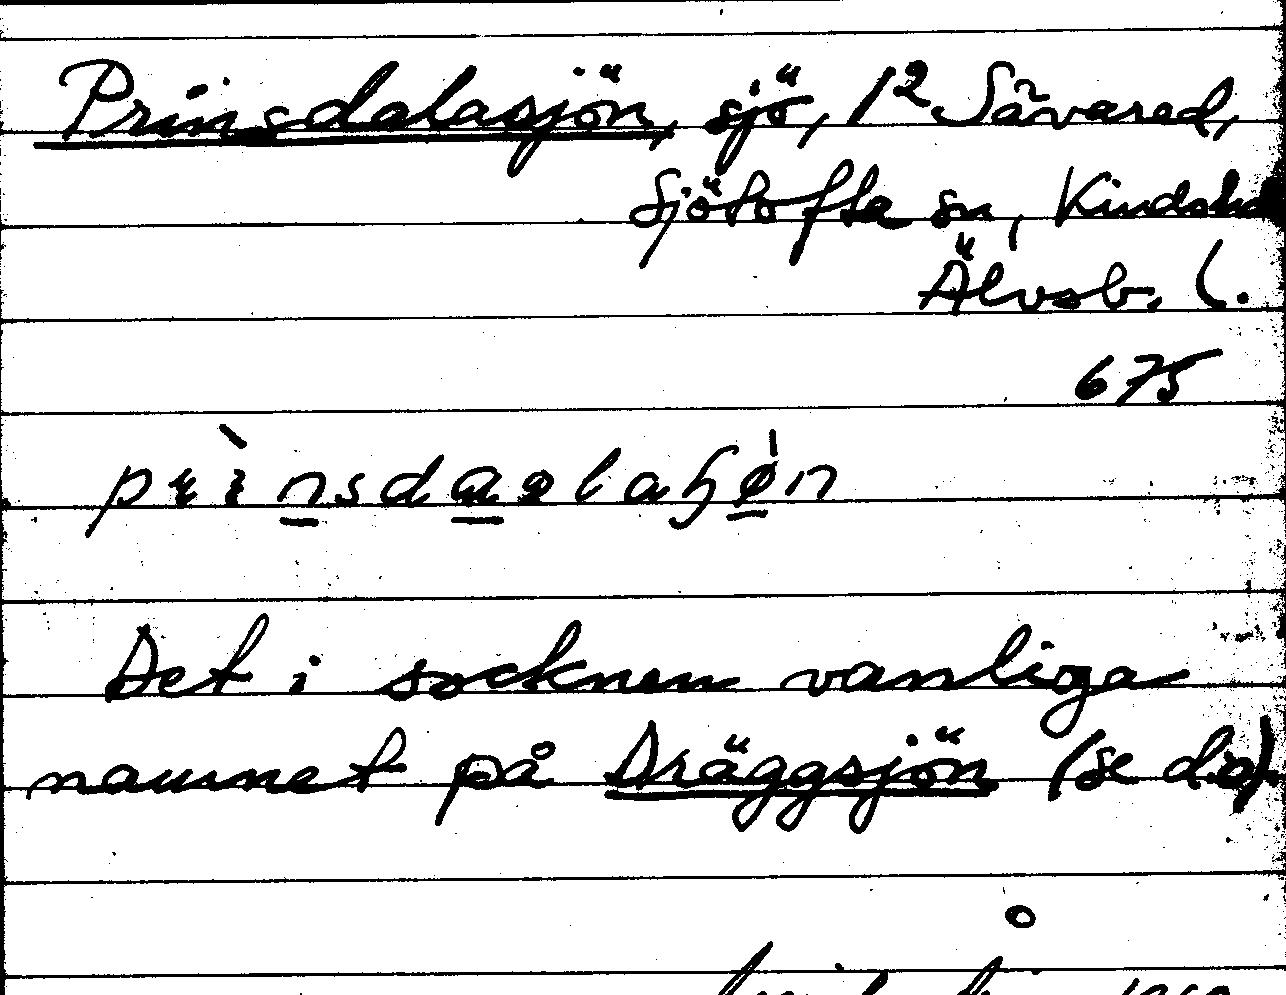 Pringdalasjön, sjö, 12 Sävared,
Sjötofta sn, Kinds hd
Älvsb. l.
675
Det i socknen vanliga
namnet på Dräggsjön (se d.o.)